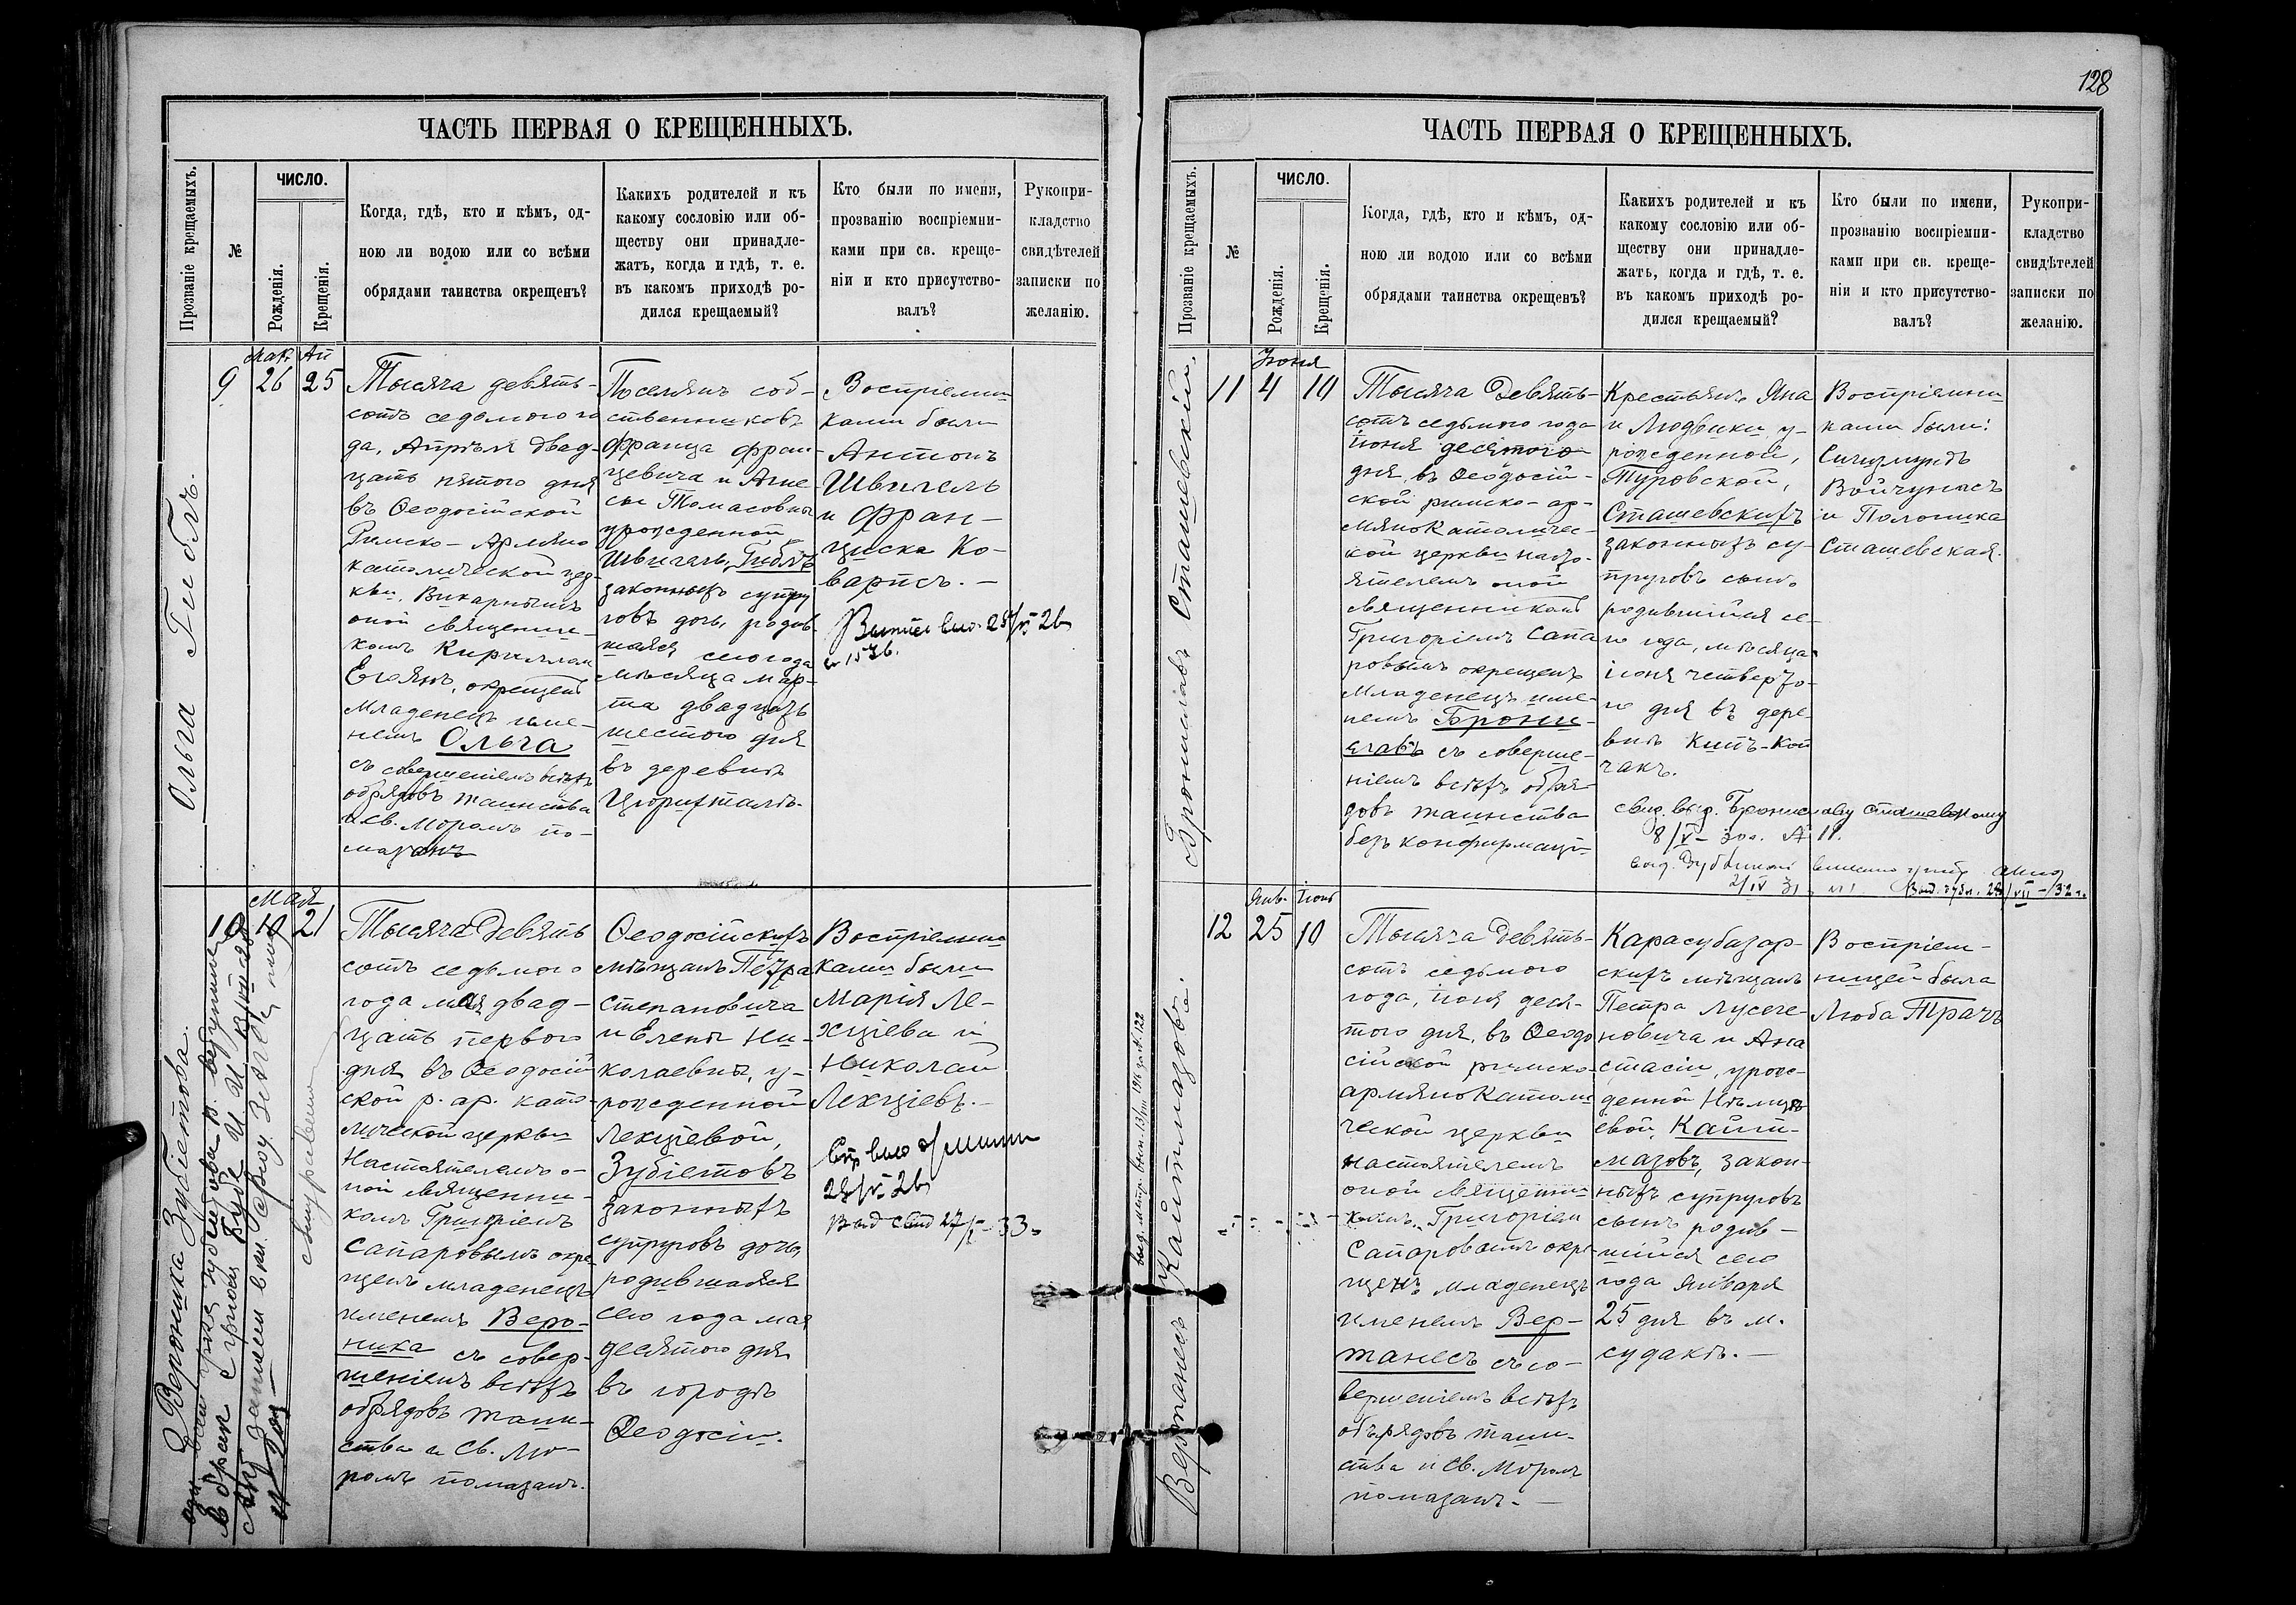 ЧАСТЬ ПЕРВАЯ О КРЕЩЕННЫХЪ.
Прозваніе крещаемыхъ.
№
ЧИСЛО.
Рожденія.
Крещенія.
Когда, гдѣ, кто и кѣмъ, од-
ною ли водою или со всѣми
обрядами таинства окрещенъ?
Каихъ родителей и къ
какому сословію или об-
ществу они принадле-
жатъ, когда и гдѣ, т. е.
въ какомъ приходѣ ро-
дился крещаемый?
Кто были по имени,
прозванію воспріемни-
ками при св. креще-
ніи и кто присутство-
валъ?
Рукопри-
кладство
свидѣтелей
записки по
желанію.
Ольга Гиблъ.
9
Мар. Ап
26 25
Тысяча девять-
сотъ седьмого го
да, Апрѣля двад-
цать пятого дня
въ Ѳеодосійской
Римско-Армяно
католической цер-
кви, Викарнымъ
оной священни-
комъ Кириллом
Егеянъ, окрещенъ
младенецъ име-
немъ Ольга
съ совершеніемъ всѣхъ
обрядовъ таинства
и св. Мѵромъ по-
мазанъ
Поселянъ соб-
ственниковъ
Франца Фран-
цевича и Агне-
сы Томасовны
урожденной
Швигель, Гиблъ
законныхъ супру
говъ дочь, родив-
шаяся сего года
мѣсяца мар-
та двадцать
шестого дня
въ деревнѣ
Цюрихталь.
Воспріемни
ками были
Антонъ
Швигель
и Фран-
циска Ко-
варисъ.-
25/VI 26
Вероника Зубіетова.
10
Мая
10 21
Тысяча Девять
сотъ седьмого
года мая двад-
цать первого
дня въ Ѳеодосій
ской р. ар. като-
лической церкви
Настоятелемъ о-
ной священни-
комъ Григоріемъ
Сапаровымъ окре
щенъ младенецъ
именемъ Веро-
ника съ совер-
шеніемъ всѣхъ
обрядовъ таин-
ства и Св. Мѵ-
ромъ помазанъ.
Ѳеодосійскихъ
мѣщанъ Петра
Степановича
и Елены Ни-
колаевны, у-
рожденной
Лекціевой,
Зубіетовъ
законныхъ
супруговъ дочь,
родившаяся
сего года мая
десятого дня
въ городѣ
Ѳеодосіи.
Воспріемни
ками были
Марія Ле-
кціева и
Николай
Лекціевъ.-
28/VI 26
27/I-33
128
ЧАСТЬ ПЕРВАЯ О КРЕЩЕННЫХЪ.
Прозваніе крещаемыхъ.
№
ЧИСЛО.
Рожденія.
Крещенія.
Когда, гдѣ, кто и кѣмъ, од-
ною ли водою или со всѣми
обрядами таинства окрещенъ?
Каихъ родителей и къ
какому сословію или об-
ществу они принадле-
жатъ, когда и гдѣ, т. е.
въ какомъ приходѣ ро-
дился крещаемый?
Кто были по имени,
прозванію воспріемни-
ками при св. креще-
ніи и кто присутство-
валъ?
Рукопри-
кладство
свидѣтелей
записки по
желанію.
Брониславъ Сташевскій.
11
Іюня
4 10
Тысяча Девять-
сотъ седьмого года
іюня десятого
дня, въ Ѳеодосій-
ской римско-ар-
мянокатоличес-
кой церкви насто-
ятелемъ оной
священникомъ
Григоріемъ Сапа
ровымъ окрещенъ
младенецъ име-
немъ Брони-
славъ съ соверше-
ніемъ всѣхъ обря-
довъ таинства
безъ конфирмаціи
Крестьянъ Яна
и Людвики, у-
рожденной,
Туровской,
Сташевскихъ
законныхъ су-
пруговъ сынъ
родившійся се-
го года, мѣсяца
іюня четверто-
го дня въ дере-
внѣ Китъ-Кой
чакъ.
Воспріемни
ками были:
Сигизмундъ
Войчунасъ
и Полоника
Сташевская.
свид. выд. Брониславу Сташевскому
8/V-30 г. № 11.
12
Янв. Іюня
25 10
Вертанесъ Каитмазовъ.
Тысяча Девять-
сотъ седьмого
года, іюня деся-
того дня, въ Ѳеодо
сійской римско-
армянокатоли
ческой церкви
настоятелемъ
оной священни-
комъ Григоріем
Сапаровымъ окре-
щенъ младенецъ
именемъ Вер-
танесъ съ со-
вершеніемъ всѣхъ
обрядовъ таин-
ства и Св. Мѵромъ
помазанъ.-
Карасубазар-
скихъ мѣщанъ
Петра Лусеге-
новича и Ана
стасіи, урож-
денной Нѣмцо
евой, Каит-
мазовъ, закон-
ныхъ супруговъ
сынъ родив-
шійся сего
года января
25 дня въ м.
Судакѣ.-
Воспріем-
ницей была
Люба Трачъ